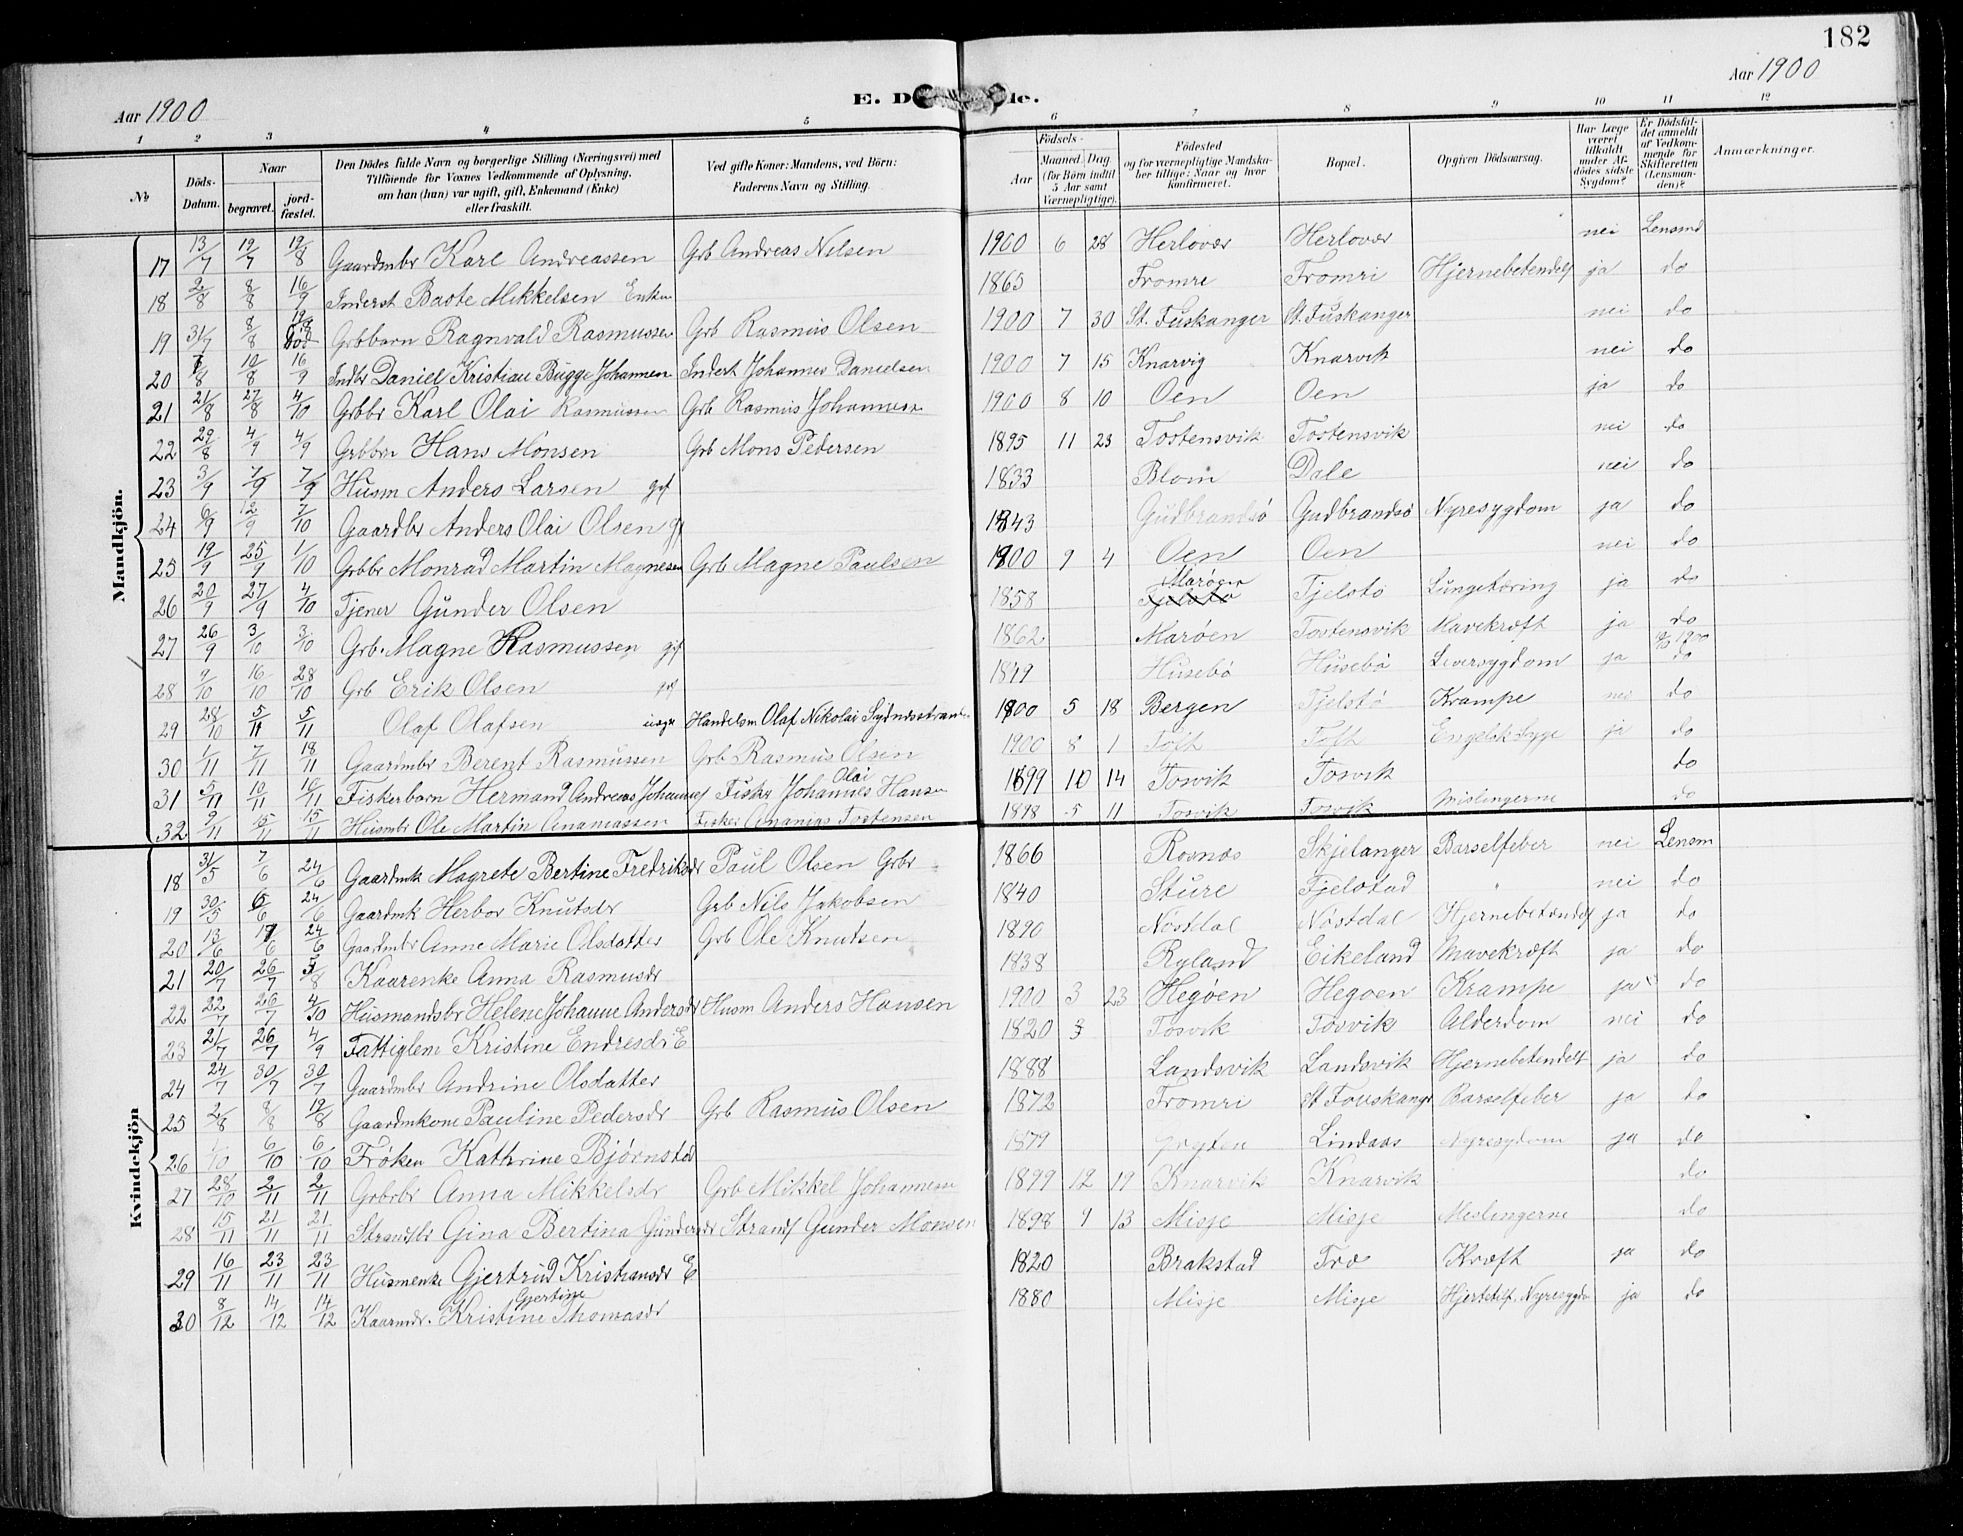 182
Aar 1900
Aar 1900
E. D de.
1 2 3 4 5 6 7 8 9 10 11 12
No
Döds-Datum.
Naar
begravet.
jord-fæstet.
Den Dödes fulde Navn og borgerlige Stilling (Næringsvei) med Tilföiende for Voxnes Vedkommende af Oplysning, om han (hun) var ugift, gift, Enkemand (Enke) eller fraskilt.
Ved gifte Koner: Mandens, ved Börn: Faderens Navn og Stilling.
Födsels-
Aar
Maaned. Dag (for Börn indtil 5 Aar samt Værnepligtige).
Födested og for værnepligtige Mandskaber tillige: Naar og hvor konfirmeret.
Bopæl.
Opgiven Dödsaarsag.
Har Læge været tilkaldt under Afdödes sidste Sygdom?
Er Dödsfaldet anmeldt af Vedkommende for Skifteretten (Lensmanden)?
Anmærkninger.
Mandkjön.
17 13/7 19/7 19/8 Gaardmbr Karl Andreassen Grb Andreas Nilsen 1900 6 28 Herlovær Herlovær nei Lensmd
18 2/8 8/8 16/9 Inderst Baote Mikkelsen Enkem 1865 Fromre Fromri Hjernebetendels ja do
19 31/7 8/8 Grbbarn Ragnvald Rasmussen Grb Rasmus Olsen 1900 7 30 St. Fuskanger St. Fuskanger nei do
20 10/8 16/9 Indbr Daniel Kristian Bugge Johannen Inderst Johannes Danielsen 1900 7 15 Knarvig Knarvik nei do
21 21/8 27/8 4/10 Grbbr Karl Olai Rasmussen Grb Rasmus Johannesn 1900 8 10 Oen Oen ja do
22 29/8 4/9 4/9 Grbbrn Hans Monsen Grb Mons Pedersen 1895 11 23 Tostensvik Tostensvik nei do
23 3/9 7/9 7/9 Husm Anders Larsen gif 1833 Blom Dale nei do
24 6/9 12/9 7/10 Gaardbr Anders Olai Olsen gf 1843 Gudbrandsö Gudbrandsö Nyresygdom ja do
25 19/9 25/9 1/10 Grbbr Monrad Martin Magnesen Grb Magne Paulsen 1900 9 4 Oen Oen nei do
26 20/9 27/9 4/10 Tjener Gunder Olsen 1858 Marøen Tjelstø Lungetæring ja do
27 26/9 3/10 3/10 Grb. Magne Rasmussen gif 1862 Marøen Tostensvik Mavekræft ja do
28 9/10 16/10 28/10 Grb Erik Olsen gif 1849 Husebø Husebø Leversygdom ja do
29 28/10 5/11 5/11 Olaf Olafsen Handelsm Olaf Nikolai 1900 5 18 Bergen Tjelstø Krampe nei do
30 1/11 7/11 18/11 Gaardmbr Berent Rasmussen Grb Rasmus Olsen 1900 8 1 Toft Toft Engelsk Syge ja do
31 5/11 10/11 10/11 Fiskerbarn Hermand Andreas Johannes Fisker Johannes Olai Hansen 1899 10 14 Tosvik Tosvik do
32 9/11 15/11 15/11 Husmbr Ole Martin Ananiassen Fisker Ananias Tostensen 1898 5 11 Tosvik Tosvik Mislingerne do
Kvindekjön
18 31/5 7/6 24/6 Gaardmk Magrete Bertine Fredriksdr Paul Olsen Grbr 1866 Rosnæs Skjelanger Barselfeber nei Lensm
19 30/5 6/6 24/6 Gaardmk Herbor Knutsdr Grb Nils Jakobsen 1840 Sture Tjelstad " nei do
20 13/6 17/6 24/6 Gaardmbr Anne Marie Olsdatter Grb Ole Knutsen 1890 Nöstdal Nöstdal Hjernebetændels ja do
21 20/7 26/7 5/8 Kaarenke Anna Rasmusdr 1838 Ryland Eikeland Mavekræft ja do
22 22/7 26/7 Husmandsbr Helene Johanne Andersdr Husm Anders Hansen 1900 3 23 Hegøen Hegøen Krampe ja do
23 21/7 26/7 4/9 Fattiglem Kristine Endresdr E 1820 Tosvik Tosvik Alderdom nei do
24 24/7 30/7 30/7 Gaardmbr Andrine Olsdatter 1888 Landsvik Landsvik Hjernebetendels ja do
25 2/8 8/8 19/8 Gaardmkone Pauline Pedersdr Grb Rasmus Olsen 1872 Fromri St Fouskangr Barselfeber ja do
26 6/10 6/10 Frøken Kathrine Bjørnstad 1879 Lindaas Nyresygdom ja do
27 28/10 2/11 2/11 Grbrbr Anna Mikkelsdr Grb Mikkel Johannesn 1899 12 19 Knarvik Knarvik do
28 15/11 21/11 21/11 Gina Bertina Gundersdr Strands Gunder Monsen 1898 9 13 Misje Misje Meslingerne do
29 16/11 23/11 23/11 Husmenke Gjertrud Kristiansdr E 1820 Brakstad Træ Kræft ja do
30 8/12 14/12 14/12 Kaarmdr. Kristine Gjertine Thomasdr 1880 Misje Misje Hjertefeil, Nyresygdo ja do